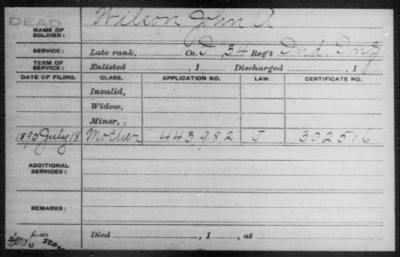 DEAD
NAME OF SOLDIER: Wilson John A
SERVICE: Late rank, Co. D, 34 Reg't Ind. Inf
TERM OF SERVICE: Enlisted , 1 Discharged , 1
DATE OF FILING. CLASS. APPLICATION NO. LAW. CERTIFICATE NO.
Invalid,
Widow,
Minor,
1890 July 18 Mother 443982 J 302516
ADDITIONAL SERVICES:
REMARKS:
Died , 1 , at